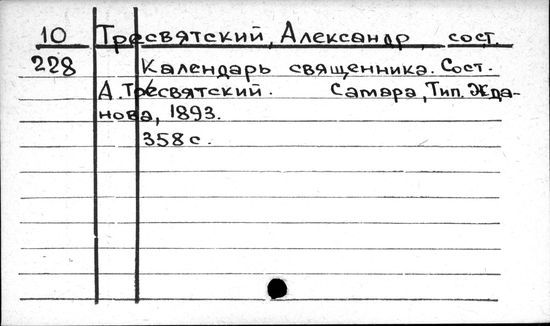 10 Тресвятский, Александр, сост.
228 Календарь священника. Сост.
А. Тресвятский. Самара, Тип. Жда-
нова, 1893.
358 с.